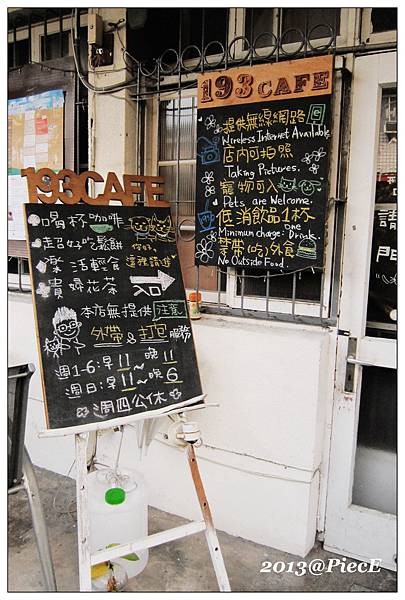 193 CAFE
提供無線網路
Wireless Internet Available.
店內可拍照
Taking Pictures.
寵物可入
Pets are Welcome.
低消飲品1杯
Minimum charge: one Drink.
禁帶(吃)外食
No Outside Food.
193 CAFE
喝杯咖啡
超好吃鬆餅
樂活輕食
貴婦花茶
你好,
這裡請進
入口
本店無提供 注意
外帶&打包服務
週1-6:早11~晚11
週日:早11~晚6
週四公休
2013@PiecE